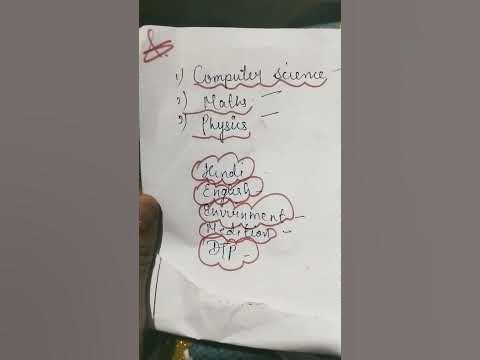 1) Computer science
2) Maths
3) Physics
Hindi
English
Envirnment
Medition
DTP